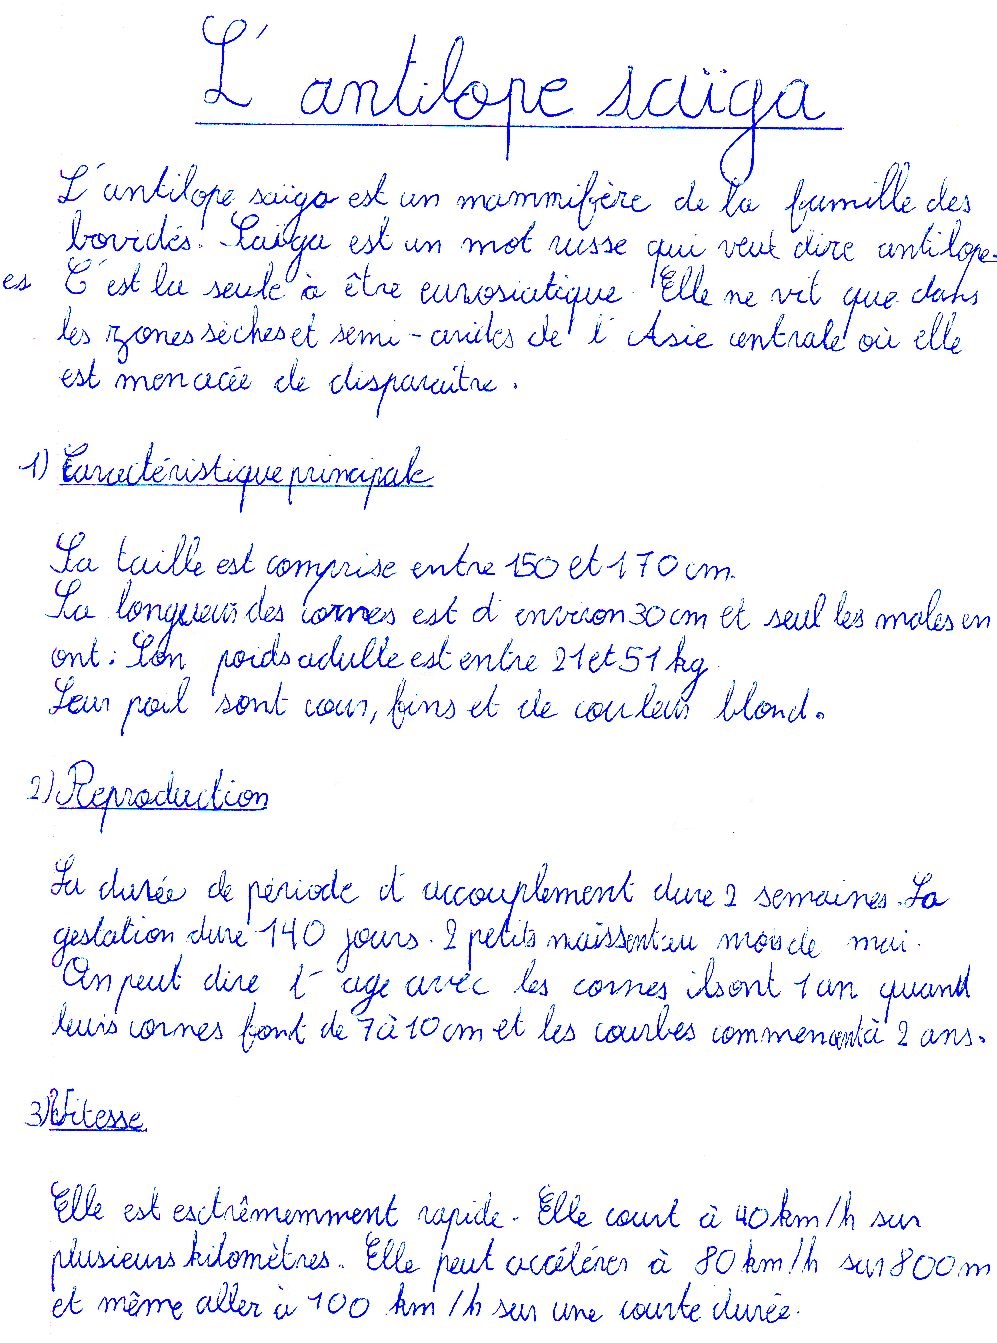 L'antilope saïga
L'antilope saïga est un mammifère de la famille des
bovidés. Saïga est un mot russe qui veut dire antilope-
es C'est la seule à être eurosiatique. Elle ne vit que dans
les zones sèches et semi-arides de l'Asie centrale où elle
est menacée de disparaître.
1) Caractéristique principale
Sa taille est comprise entre 150 et 170 cm.
La longueur des cornes est d'environ 30 cm et seul les males en
ont. Son poids adulte est entre 21 et 51 kg.
Leur poil sont cour, fins et de couleur blond.
2) Reproduction
La durée de période d'accouplement dure 2 semaines. La
gestation dure 140 jours. 2 petits naissent au mois de mai.
On peut dire l'age avec les cornes ils ont 1 an quand
leurs cornes font de 7 à 10 cm et les courbes commencent à 2 ans.
3) Vitesse
Elle est esctrêmemment rapide. Elle court à 40 km/h sur
plusieurs kilomètres. Elle peut accélérer à 80 km/h sur 800 m
et même aller à 100 km/h sur une courte durée.